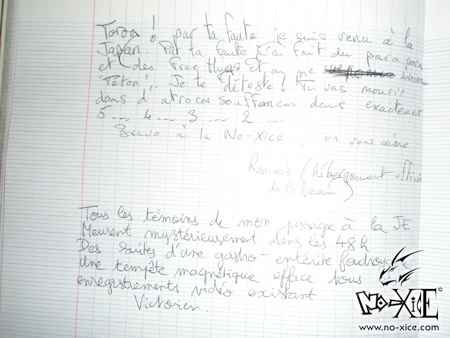 Toroa ! par ta faute je suis venu à la
Japan. Par ta faute j'ai fait du para para
et des Free Hugs et on me
"Péton". Je te déteste ! Tu vas mourir
dans d'atroces souffrances dans exactement
5 ... 4 ... 3 ... 2 ...
Bravo à la No-Xice, on vous
(hébergement
de la Team)
Tous les témoins de mon passage à la JE
Meurent mystérieusement dans les 48h
Des suites d'une gastro-entérite
Une tempête magnétique efface tous
enregistrements vidéo existant
Victorien.
NO-XICE
www.no-xice.com